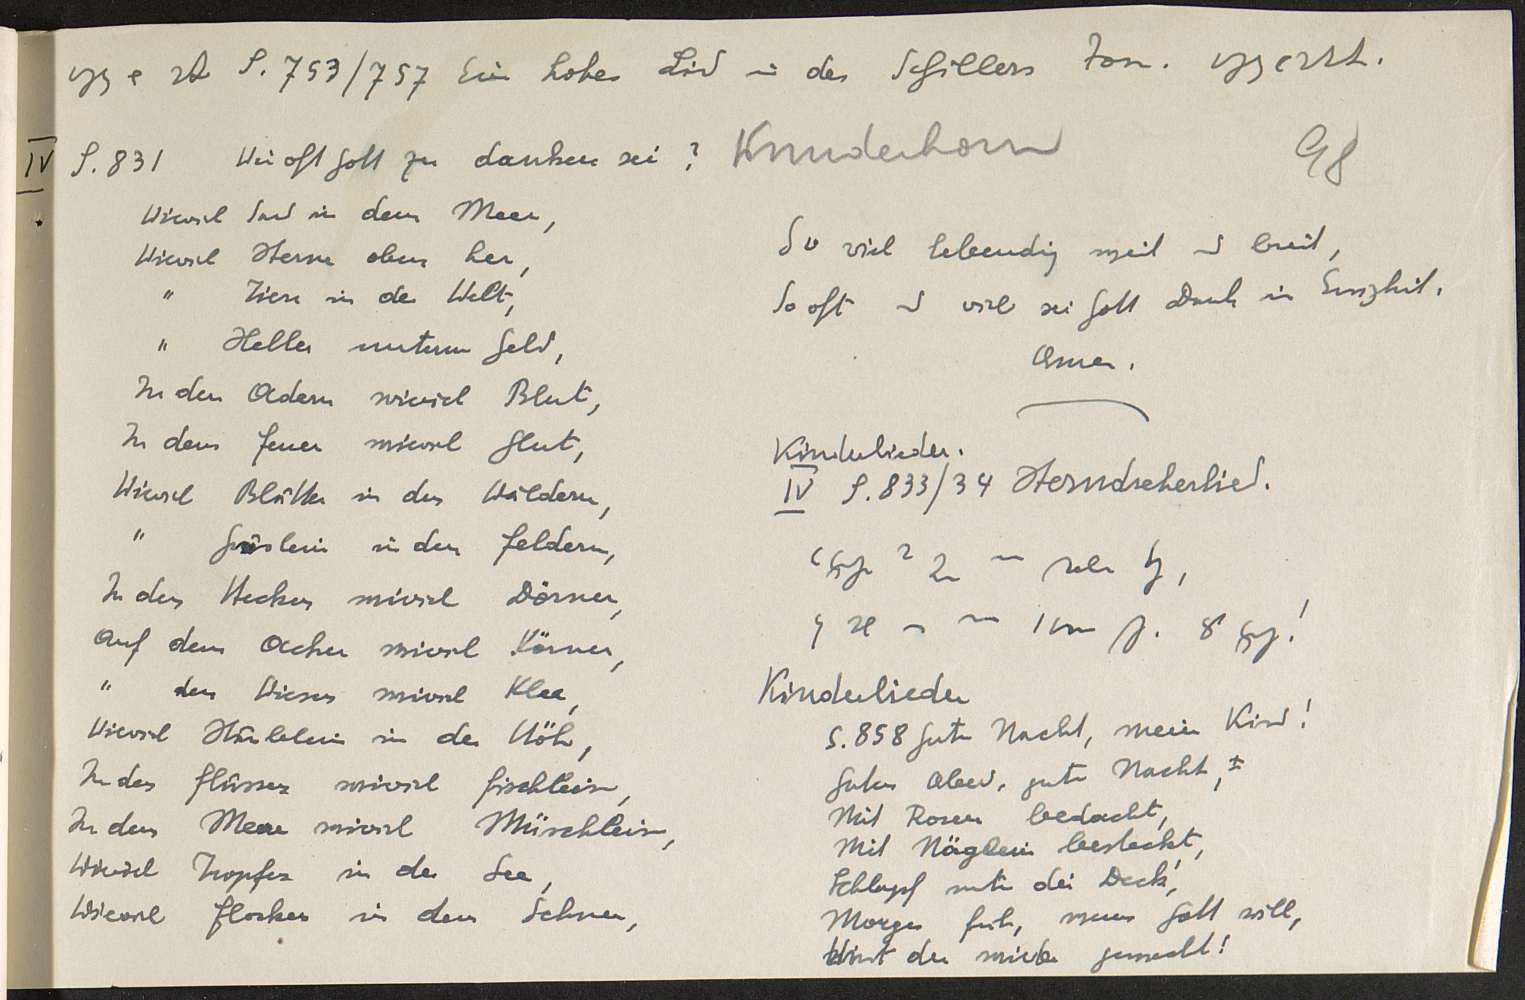 S. 753/757 Ein hohes Lied in des Schillers Ton.
IV S. 831 Wie oft Gott zu danken sei? Wunderhorn 98
Wieviel Sand in dem Meer,
Wieviel Sterne oben her,
" Tiere in der Welt,
" Heller unterm Geld,
In den Adern wieviel Blut,
In dem Feuer wieviel Glut,
Wieviel Blätter in den Wäldern,
" Gräslein in den Feldern,
In den Hecken wieviel Dörner,
Auf dem Acker wieviel Körner,
" den Wiesen wieviel Klee,
Wieviel Stäublein in der Höh,
In den Flüssen wieviel Fischlein,
In dem Meere wieviel Müschlein,
Wieviel Tropfen in der See,
Wieviel Flocken in dem Schnee,
So viel lebendig weit u breit,
So oft u viel sei Gott Dank in Ewigkeit.
Amen.
Kinderlieder.
IV S. 833/34 Sterndreherlied.
Kinderlieder
S. 858 Gute Nacht, mein Kind!
Guten Abend, gute Nacht,
Mit Rosen bedacht,
Mit Näglein besteckt,
Schlupf unter die Deck,
Morgen früh, wenn Gott will,
Wirst du wieder geweckt!